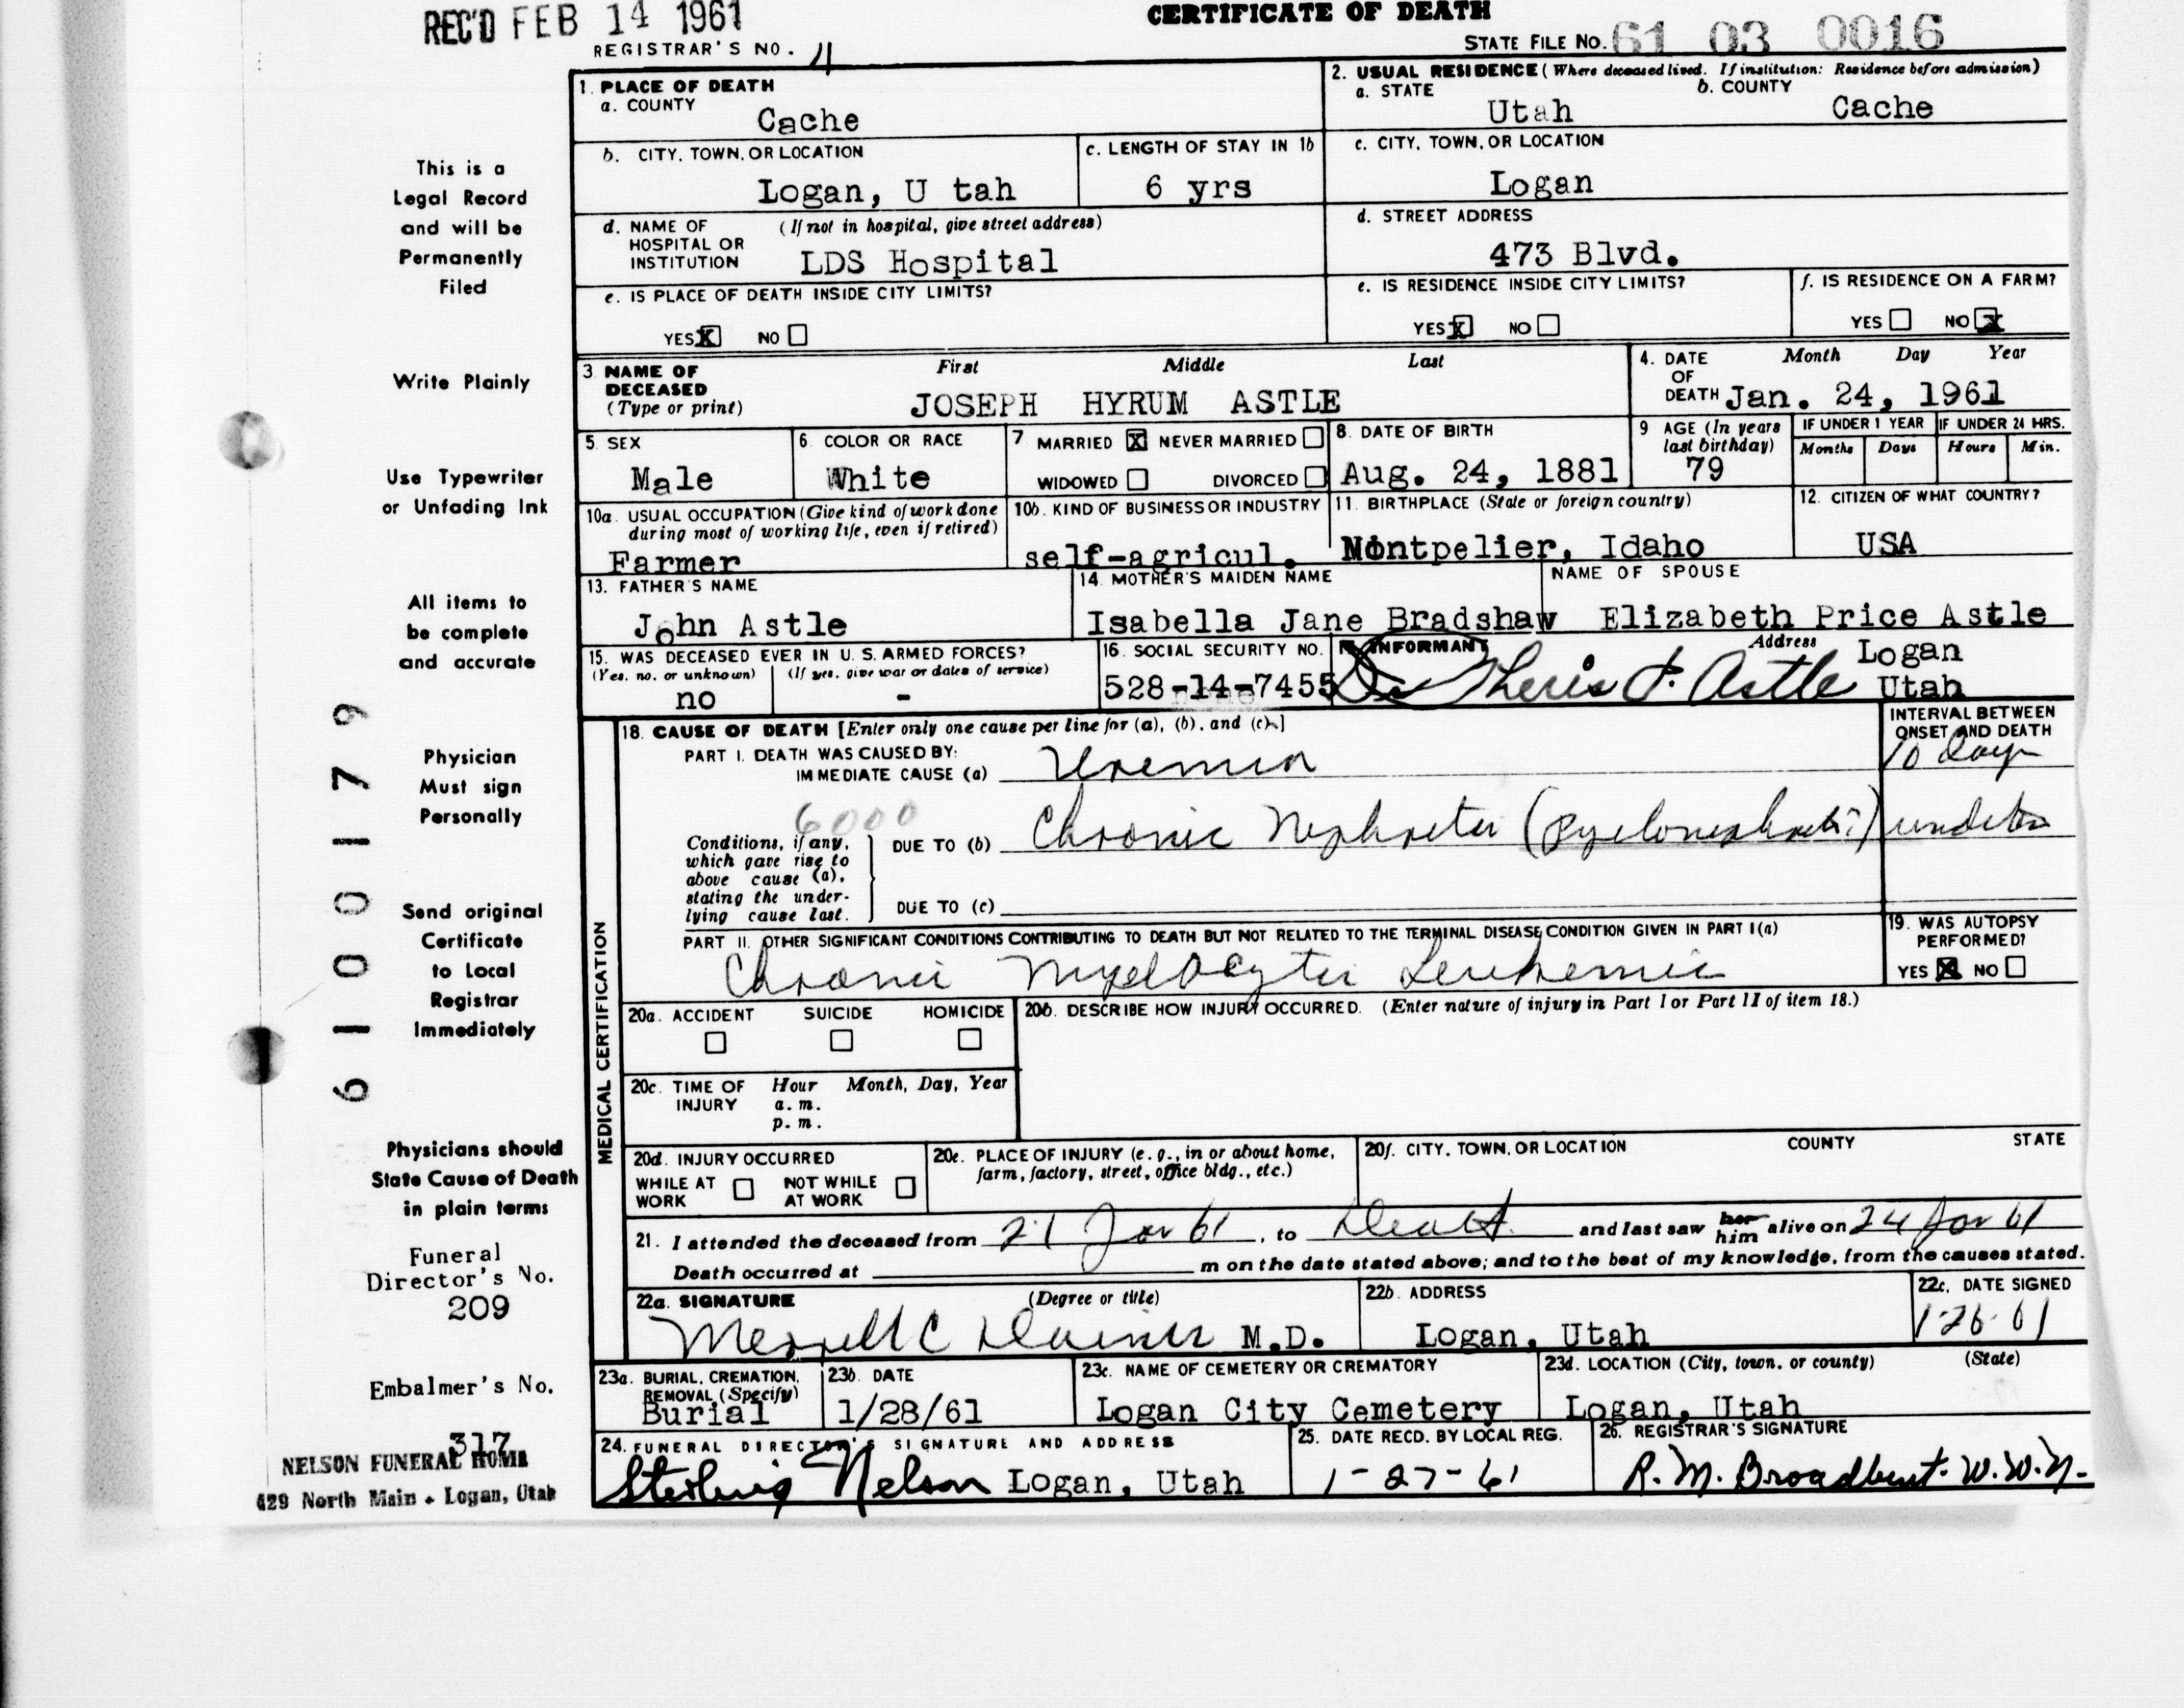 REC'D FEB 14 1961
CERTIFICATE OF DEATH
REGISTRAR'S NO. 11
STATE FILE NO. 61 03 0016
1. PLACE OF DEATH
a. COUNTY
Cache
2. USUAL RESIDENCE (Where deceased lived. If institution: Residence before admission)
a. STATE
Utah
b. COUNTY
Cache
b. CITY, TOWN, OR LOCATION
Logan, U tah
c. LENGTH OF STAY IN 1b
6 yrs
c. CITY, TOWN, OR LOCATION
Logan
d. NAME OF HOSPITAL OR INSTITUTION (If not in hospital, give street address)
LDS Hospital
d. STREET ADDRESS
473 Blvd.
e. IS PLACE OF DEATH INSIDE CITY LIMITS?
YES X NO
e. IS RESIDENCE INSIDE CITY LIMITS?
YES X NO
f. IS RESIDENCE ON A FARM?
YES NO X
3. NAME OF DECEASED (Type or print)
First Middle Last
JOSEPH HYRUM ASTLE
4. DATE OF DEATH
Month Day Year
Jan. 24, 1961
5. SEX
Male
6. COLOR OR RACE
White
7 MARRIED X NEVER MARRIED
WIDOWED DIVORCED
8. DATE OF BIRTH
Aug. 24, 1881
9 AGE (In years last birthday)
79
IF UNDER 1 YEAR
Months Days
IF UNDER 24 HRS.
Hours Min.
10a. USUAL OCCUPATION (Give kind of work done during most of working life, even if retired)
Farmer
10b. KIND OF BUSINESS OR INDUSTRY
self-agricul.
11. BIRTHPLACE (State or foreign country)
Montpelier, Idaho
12. CITIZEN OF WHAT COUNTRY?
USA
13. FATHER'S NAME
John Astle
14. MOTHER'S MAIDEN NAME
Isabella Jane Bradshaw
NAME OF SPOUSE
Elizabeth Price Astle
15. WAS DECEASED EVER IN U. S. ARMED FORCES?
(Yes, no, or unknown) (If yes, give war or dates of service)
no -
16. SOCIAL SECURITY NO.
528-14-7455
INFORMANT
Theris P. Astle
Address
Logan
Utah
MEDICAL CERTIFICATION
18. CAUSE OF DEATH [Enter only one cause per line for (a), (b), and (c).]
INTERVAL BETWEEN ONSET AND DEATH
PART I. DEATH WAS CAUSED BY:
IMMEDIATE CAUSE (a) Uremia
10 days
6000
Conditions, if any, which gave rise to above cause (a), stating the underlying cause last.
DUE TO (b) Chronic Nephritis (Pyelonephritis)
DUE TO (c)
PART II. OTHER SIGNIFICANT CONDITIONS CONTRIBUTING TO DEATH BUT NOT RELATED TO THE TERMINAL DISEASE CONDITION GIVEN IN PART I(a)
Chronic Myelocytic Leukemia
19. WAS AUTOPSY PERFORMED?
YES X NO
20a. ACCIDENT SUICIDE HOMICIDE
20b. DESCRIBE HOW INJURY OCCURRED. (Enter nature of injury in Part I or Part II of item 18.)
20c. TIME OF INJURY
Hour Month, Day, Year
a. m.
p. m.
20d. INJURY OCCURRED
WHILE AT WORK NOT WHILE AT WORK
20e. PLACE OF INJURY (e. g., in or about home, farm, factory, street, office bldg., etc.)
20f. CITY, TOWN, OR LOCATION COUNTY STATE
21. I attended the deceased from 21 Jan 61, to Death and last saw her him alive on 24 Jan 61
Death occurred at m on the date stated above; and to the best of my knowledge, from the causes stated.
22a. SIGNATURE (Degree or title)
Merrill C M.D.
22b. ADDRESS
Logan, Utah
22c. DATE SIGNED
1-26-61
23a. BURIAL, CREMATION, REMOVAL (Specify)
Burial
23b. DATE
1/28/61
23c. NAME OF CEMETERY OR CREMATORY
Logan City Cemetery
23d. LOCATION (City, town, or county) (State)
Logan, Utah
24. FUNERAL DIRECTOR'S SIGNATURE AND ADDRESS
Sterling Nelson Logan, Utah
25. DATE RECD. BY LOCAL REG.
1-27-61
26. REGISTRAR'S SIGNATURE
R. M. Broadbent. W.W.N.
This is a
Legal Record
and will be
Permanently
Filed
Write Plainly
Use Typewriter
or Unfading Ink
All items to
be complete
and accurate
Physician
Must sign
Personally
Send original
Certificate
to Local
Registrar
Immediately
Physicians should
State Cause of Death
in plain terms
Funeral
Director's No.
209
Embalmer's No.
317
NELSON FUNERAL HOME
429 North Main - Logan, Utah
61 00179